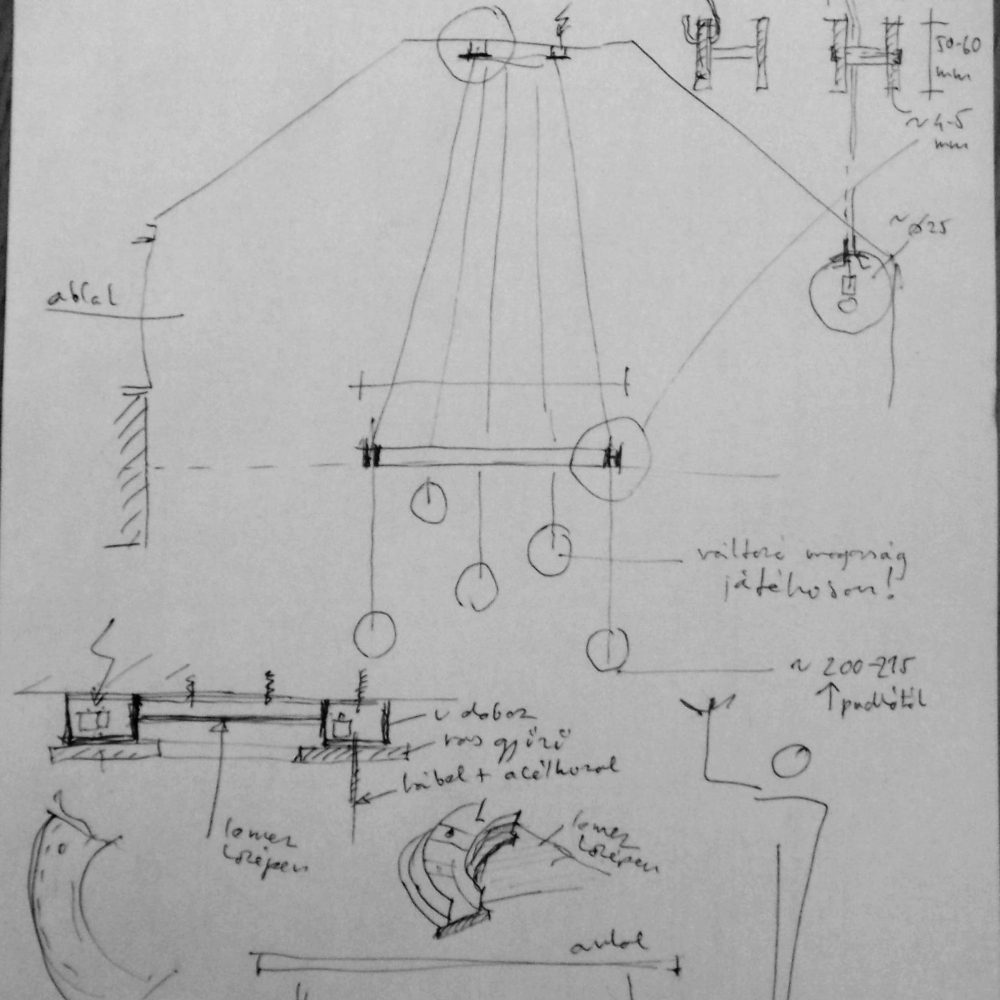 50-60
mm
~ 4-5
mm
~ ø25
ablak
változó magasság
játékosan!
~ 200-215
↑ padlótól
U doboz
vas gyűrű
kábel + acélhuzal
lemez
középen
lemez
középen